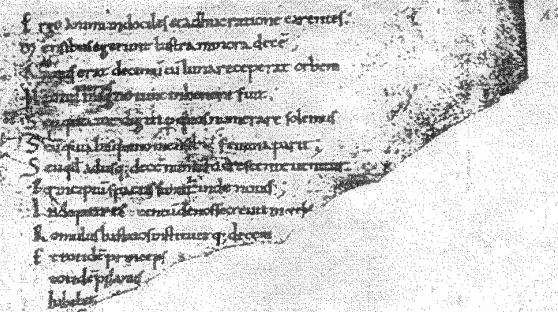 Ergo animi indociles et adhuc ratione carentes.
Mensibus egerunt lustra minora decē;
Annus erat decimū cū luna receperat orbem
magno in honore fuit.
Seu quia digiti p quos numerare solemus
Seu quia bis quino mense femina parit;
Seu qd adusq; decē numero crescente uenitur
principiū spatiis inde nouis;
Inde patres centū denos secreuit in orbes
Romulus hastatos instituitq; decem
Et totidē princeps
totidē pilanus
habebat